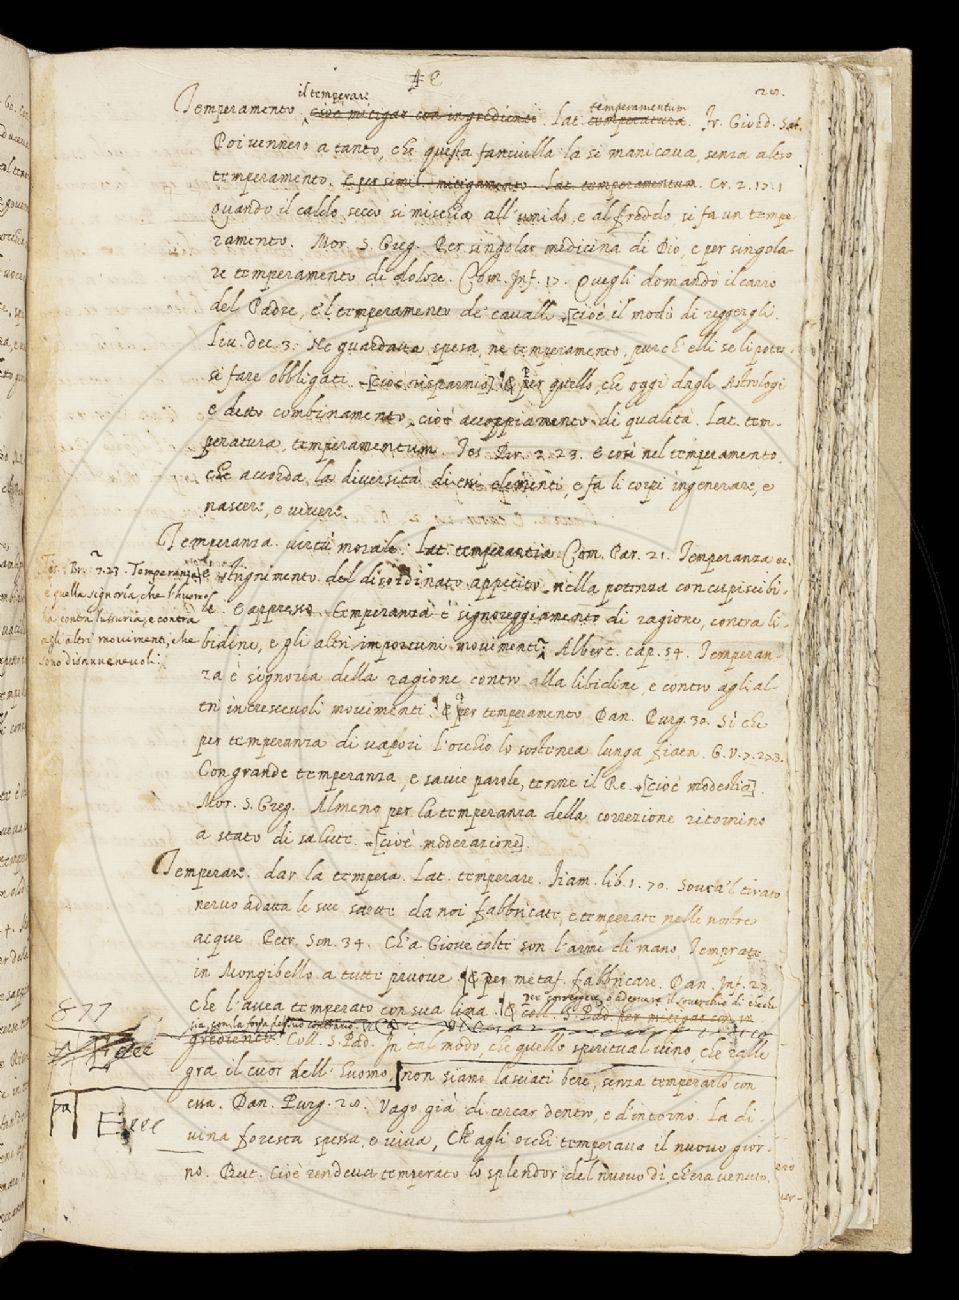 T e
28.
il temperare
temperamentum
Temperamento cioè mitigar con ingredienti. Lat. temperatura. Fr. Giord. Sal.
Poi vennero a tanto, che questa fanciulla la si manicava, senza altro
temperamento. E per simil. mitigamento. Lat. temperamentum. Cr. 2. 17. 1
Quando il caldo, secco si mischia all'umido, e al freddo, si fa un tempe-
ramento. Mor. S. Greg. Per singolar medicina di Dio, e per singola-
re temperamento di dolore. Com. Inf. 17. Quegli domandò il carro
del Padre, e 'l temperamento de' cavalli [cioè il modo di reggergli.
Liv. Dec. 3. Ne guardava spesa, ne temperamento, purch'elli se li potes-
si fare obbligati. [cioè risparmio] & per quello, che oggi dagli Astrologi
è detto combinamento, cioè accoppiamento di qualità. Lat. tem-
peratura, temperamentum. Tes. Br. 2. 23. E così nel temperamento.
che accorda la diversità di essi elementi, e fa li corpi ingenerare, e
nascere, e vivere.
Temperanza. virtù morale. Lat. temperantia. Com. Par. 21. Temperanza è
rifrignimento del disordinato appetito nella potenza concupiscibi-
le. E appresso. Temperanza è signoreggiamento di ragione, contra li-
bidine, e gli altri importuni movimenti. Albert. cap. 54. Temperan-
za è signoria della ragione contro alla libidine, e contro agli al-
tri increscevoli movimenti. & per temperamento. Dan. Purg. 30. Sì che
per temperanza di vapori l'occhio lo sostenea lunga fiata. G. V. 7. 27. 3.
Con grande temperanza, e savie parole, tenne il Re. [cioè modestia].
Mor. S. Greg. Almeno per la temperanza della correzione ritornino
a stato di salute. [cioè moderazione].
Tes. Br. 7. 23. Temperanza è
è quella signoria, che l'huomo
ha contra lussuria, e contra
agli altri movimenti, che
sono disavvenevoli.
Temperare. dar la tempera. Lat. temperare. Fiam. lib. 1. 70. Sovra 'l tirato
nervo adatta le sue saette da noi fabbricate, e temperate nelle nostre
acque. Petr. Son. 34. Ch'a Giove tolte son l'armi di mano, Temprate
in Mongibello a tutte pruove & per metaf. fabbricare. Dan. Inf. 27.
Che l'avea temperato con sua lima. & coll. S. Pad. per mitigar con in-
per correggere, o adequare il soverchio di che che
sia, con la forza del suo contrario.
gredienti. Coll. S. Pad. In tal modo, che quello spiritual vino, che ralle-
gra il cuor dell'huomo, non siamo lasciati bere, senza temperarlo con
essa. Dan. Purg. 28. Vago già di cercar dentro, e dintorno. La di-
vina foresta spessa, e viva, Ch'agli occhi temperava il nuovo gior-
no. But. Cioè rendeva temperato lo splendor del nuovo dì, ch'era venuto.